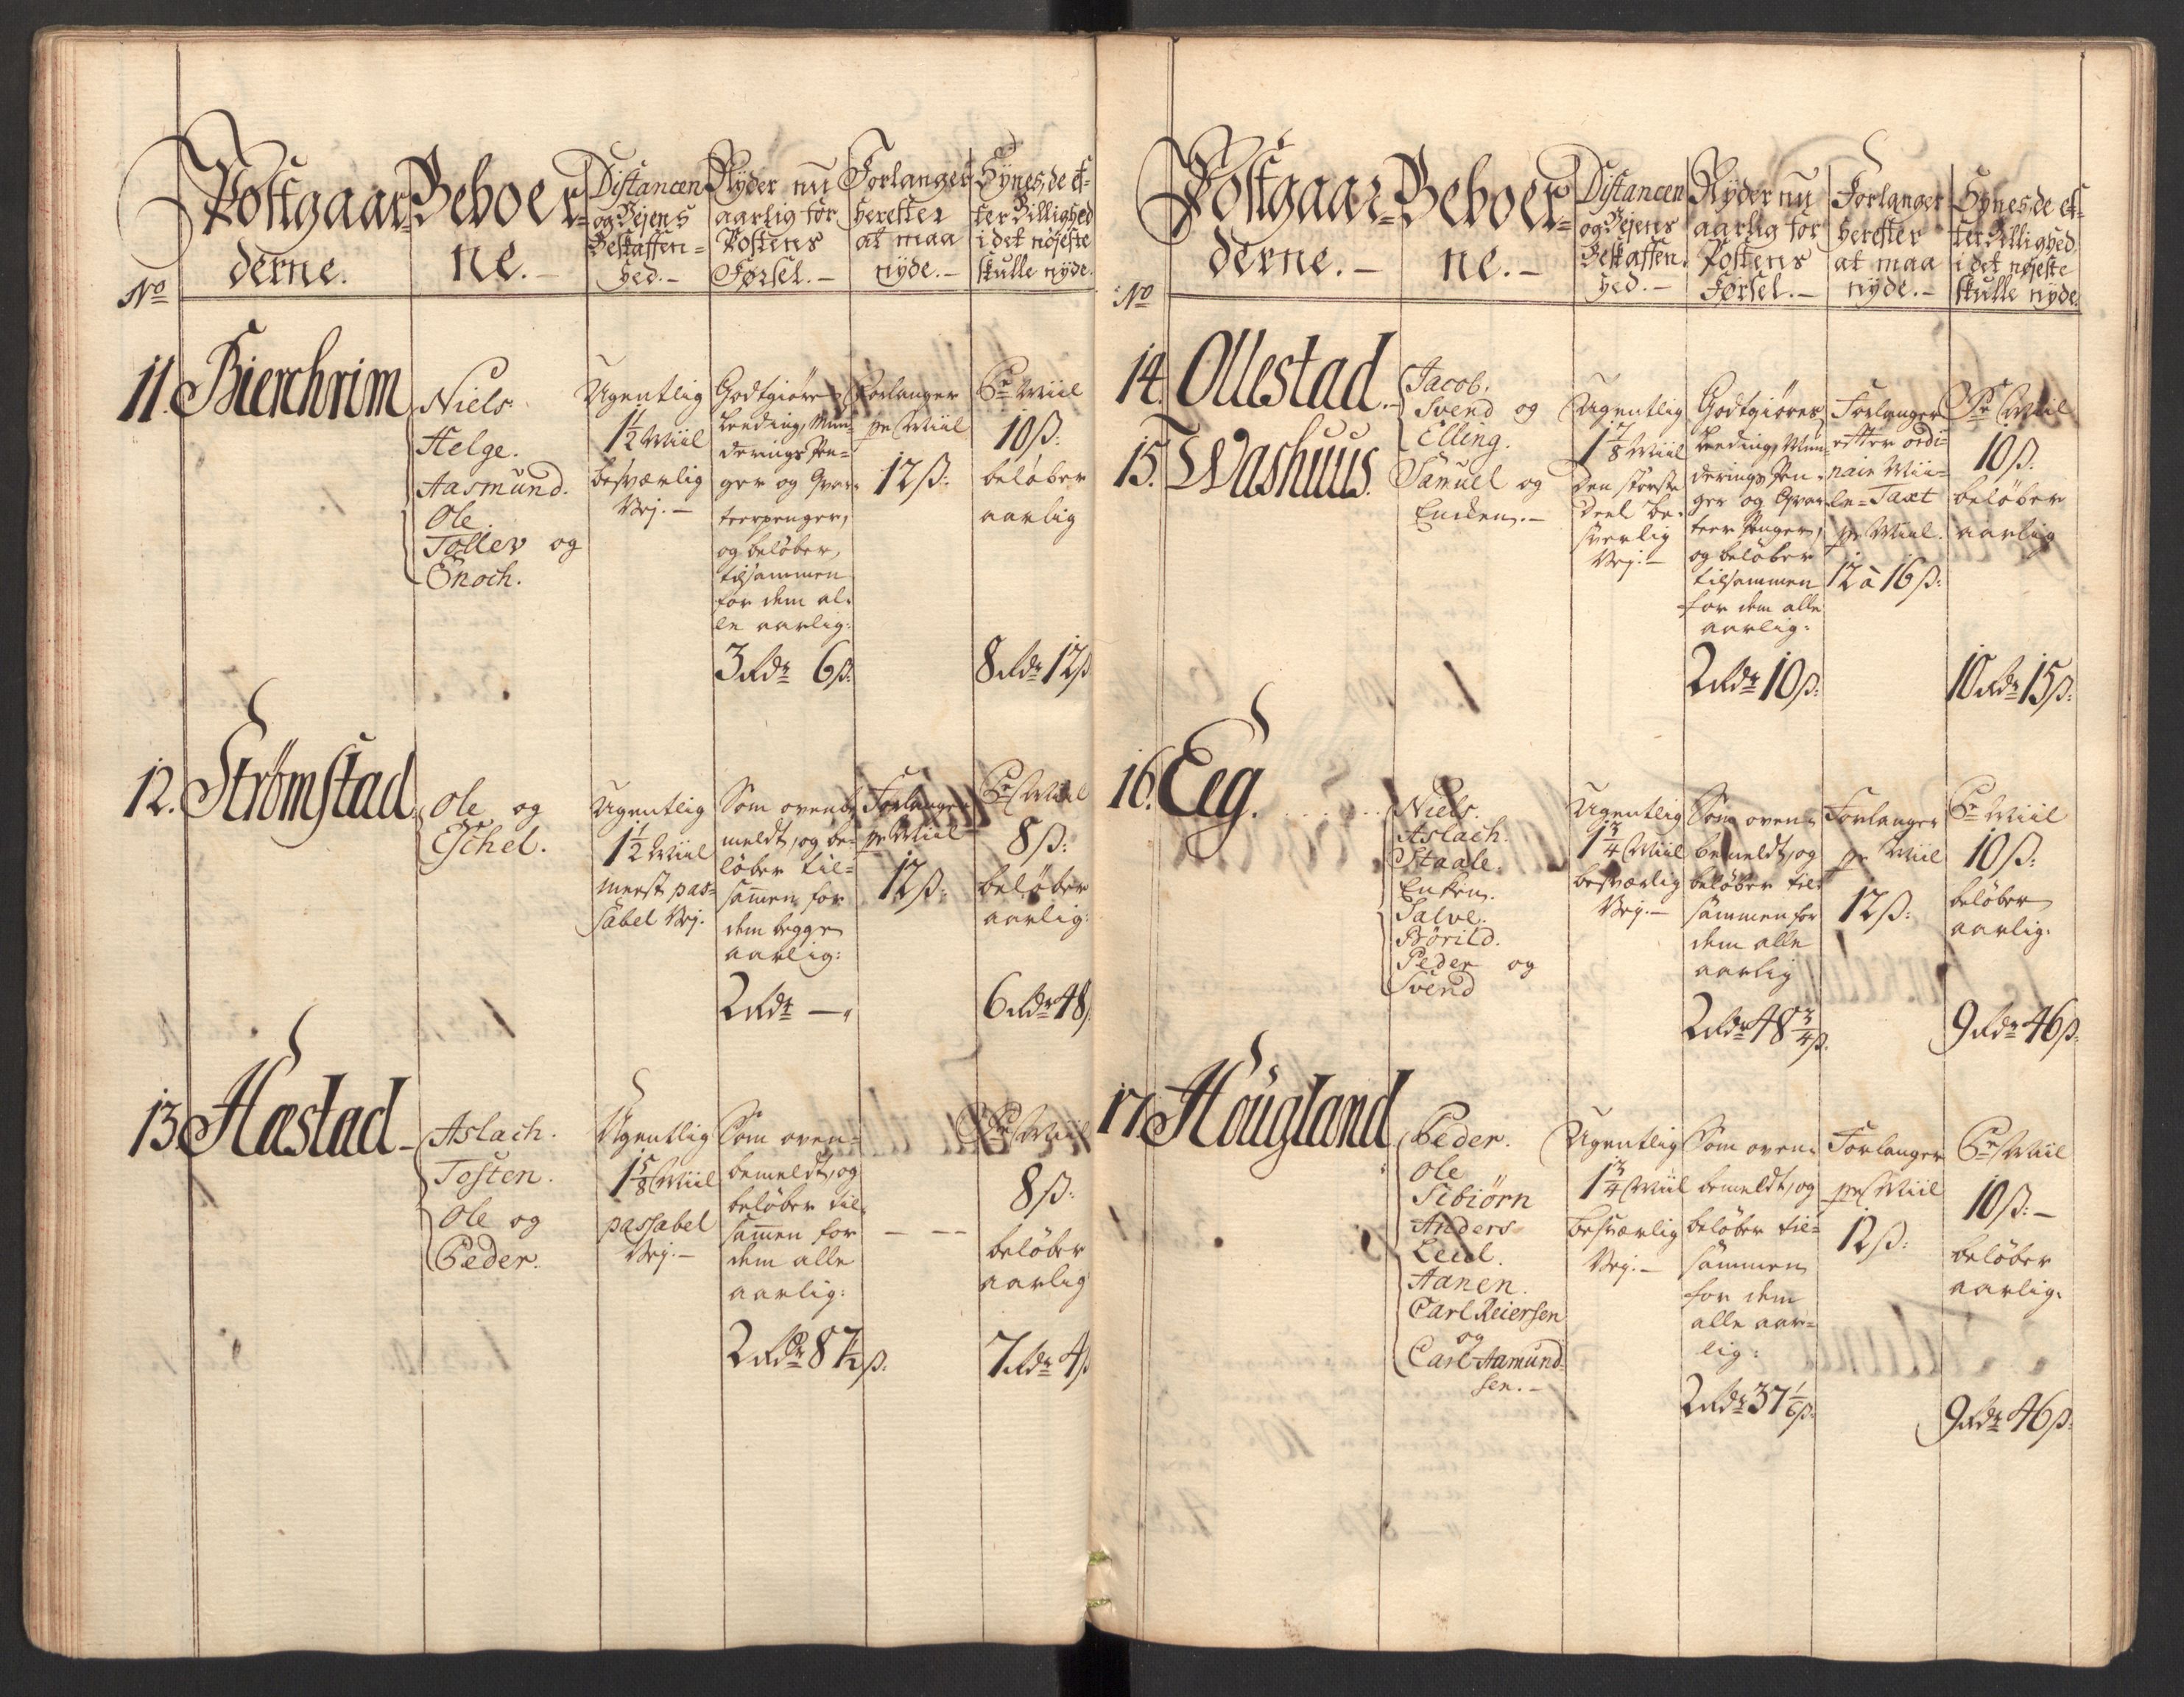 No
Postgaar-
derne.
Beboer-
ne. -
Distancen
og Vejens
Beskaffen-
hed. -
Nyder nu
aarlig for
Postens
Førsel. -
Forlanger
herefter
at maa
nyde. -
Synes, de ef-
ter Billighed
i det nøjeste
skulle nyde.
11. Bierchrim
Niels.
Helge.
Aasmund.
Ole.
Tollev og
Enoch.
Ugentlig
1 1/2 Miil
besværlig
Vej. -
Godtgiøres
Leeding, Mun-
derings Pen-
ger og Qvar-
teerpenger,
og beløber,
tilsammen
for dem al-
le aarlig:
3 Rdr 6 ß:
Forlanger
pr Miil
12 ß:
Pr Miil
10 ß:
beløber
aarlig
8 Rdr 12 ß
12. Strømstad
Ole og
Eschel.
Ugentlig
1 1/2 Miil
meest pas-
sabel Vej.
Som ovenbe-
meldt, og be-
løber til-
samen for
dem begge
aarlig:
2 Rdr —"
Forlanger
pr Miil
12 ß:
Pr Miil
8 ß:
beløber
aarlig:
6 Rdr 48 ß
13. Hæstad -
Aslach.
Tosten.
Ole og
Peder.
Ugentlig
1 5/8 Miil
passabel
Vej. -
Som oven-
bemeldt, og
beløber til-
samen for
dem alle
aarlig:
2 Rdr 87 1/2 ß:
— — —
Pr Miil
8 ß:
beløber
aarlig
7 Rdr 4 ß
No
Postgaar-
derne. -
Beboer-
ne. -
Distancen
og Vejens
Beskaffen-
hed. -
Nyder nu
aarlig for
Postens
Førsel. -
Forlanger
herefter
at maa
nyde. -
Synes, de ef-
ter Billighed,
i det nøjeste
skulle nyde.
14. Ollestad. -
15. Washuus.
Jacob.
Svend og
Elling.
Samuel og
Encken. -
Ugentlig
1 7/8 Miil
den største
deel be-
sværlig
Vej. -
Godtgiøres
Leeding, Mun-
derings Pen-
ger og Qvar-
teer Penger,
og beløber
tilsammen
for dem alle
aarlig:
2 Rdr 10 ß:
Forlanger
efter ordi-
nair Mii-
le-Taxt
pr Miil.
12 à 16 ß:
Pr Miil
10 ß:
beløber
aarlig
10 Rdr 15 ß:
16. Eeg. . . . . .
Niels.
Aslach.
Staale.
Enken.
Salve.
Børild.
Peder og
Svend
Ugentlig
1 3/4 Miil
besværlig
Vej. -
Som oven-
bemeldt, og
beløber til-
sammen for
dem alle
aarlig
2 Rdr 48 3/4 ß.
Forlanger
pr Miil
12 ß:
Pr Miil
10 ß:
beløber
aarlig:
9 Rdr 46 ß:
17. Hougland
Peder.
Ole
Sibiørn
Anders
Leul.
Aanen.
Carl Reiersen
og
Carl Aamund-
sen. -
Ugentlig
1 3/4 Miil
besværlig
Vej. -
Som oven-
bemeldt, og
beløber til-
sammen
for dem
alle aar-
lig:
2 Rdr 37 1/6 ß:
Forlanger
pr Miil
12 ß:
Pr Miil
10 ß: -
beløber
aarlig:
9 Rdr 46 ß: